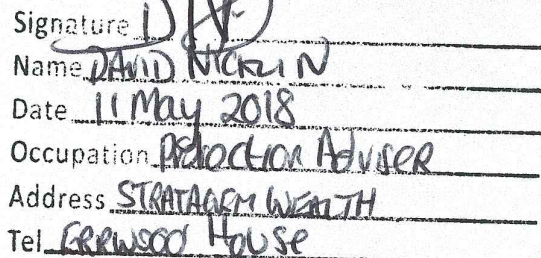 Signature
Name DAVID NICKLIN
Date 11 May 2018
Occupation Protection Adviser
Address STRATAGEM WEALTH
Tel ERRWOOD House